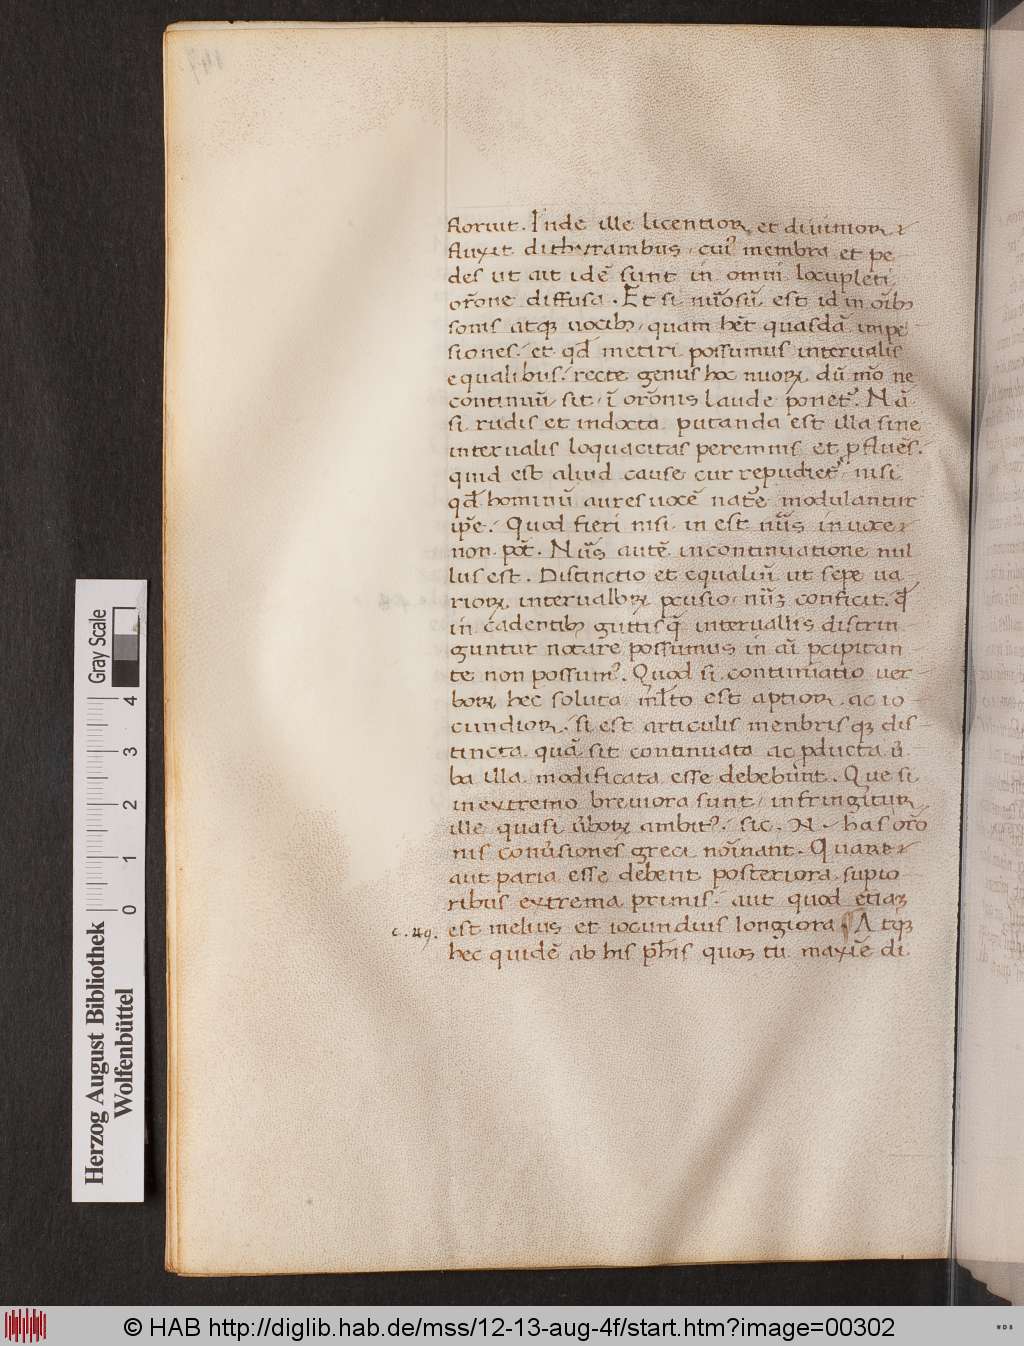 floruit. Inde ille licentior et diuitior
fluxit dithyrambus, cuiꝰ membra et pe
des ut ait idē sunt in omni locupleti
or̄one diffusa. Et si nūosū est id in oīb
sonis atqꝫ uocibꝫ, quam hēt quasdā impe
siones, et qđ metiri possumus interuallis
equalibus, recte genus hoc nūorꝝ dū mō ne
continuū sit, ī or̄onis laude ponetᷣ. Nā
si rudis et indocta putanda est illa sine
interuallis loquacitas perennis et ꝓfluēs.
quid est aliud cause cur repudietᷣ, nisi
qđ hominū aures uocē natᷣe modulantur
ip̄e. Quod fieri nisi inest nūs in uoce
non pōt. Nūs autē in continuatione nul
lus est. Distinctio et equaliū ut sepe ua
riorꝝ interuallorꝝ ꝑcusio, nūꝫ conficit. q̄
in cadentibꝫ guttis q̄ interuallis distin
guntur notare possumus in āī p̄cipitan
te non possumꝰ. Quod si continuatio uer
borꝝ hec soluta ml̄to est aptior ac io
cundior, si est articulis menbrisqꝫ dis
tincta quā sit continuata ac ꝓducta ū
ba illa modificata esse debebunt. Que si
in extremo breuiora sunt, infringitur
ille quasi ūborꝝ ambitꝰ. sic. N. has or̄o
nis conūsiones greci noīnant. Quare
aut paria esse debent posteriora supio
ribus extrema primis. aut quod etiaꝫ
c. 49. est melius et iocundius longiora ¶ Atqꝫ
hec quidē ab his ph̄is quos tū maxīe di
4
3
2
1
0
Gray Scale
Herzog August Bibliothek
Wolfenbüttel
© HAB http://diglib.hab.de/mss/12-13-aug-4f/start.htm?image=00302